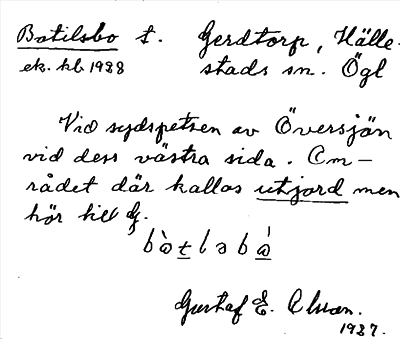 Botilsbo t. Gerdtorp, Hälle-
ek. kbl 1938 stads sn. Ögl
Vid sydspetsen av Översjön
vid dess västra sida. Om-
rådet där kallas utjord men
hör till G.
Gustaf E.
1937.